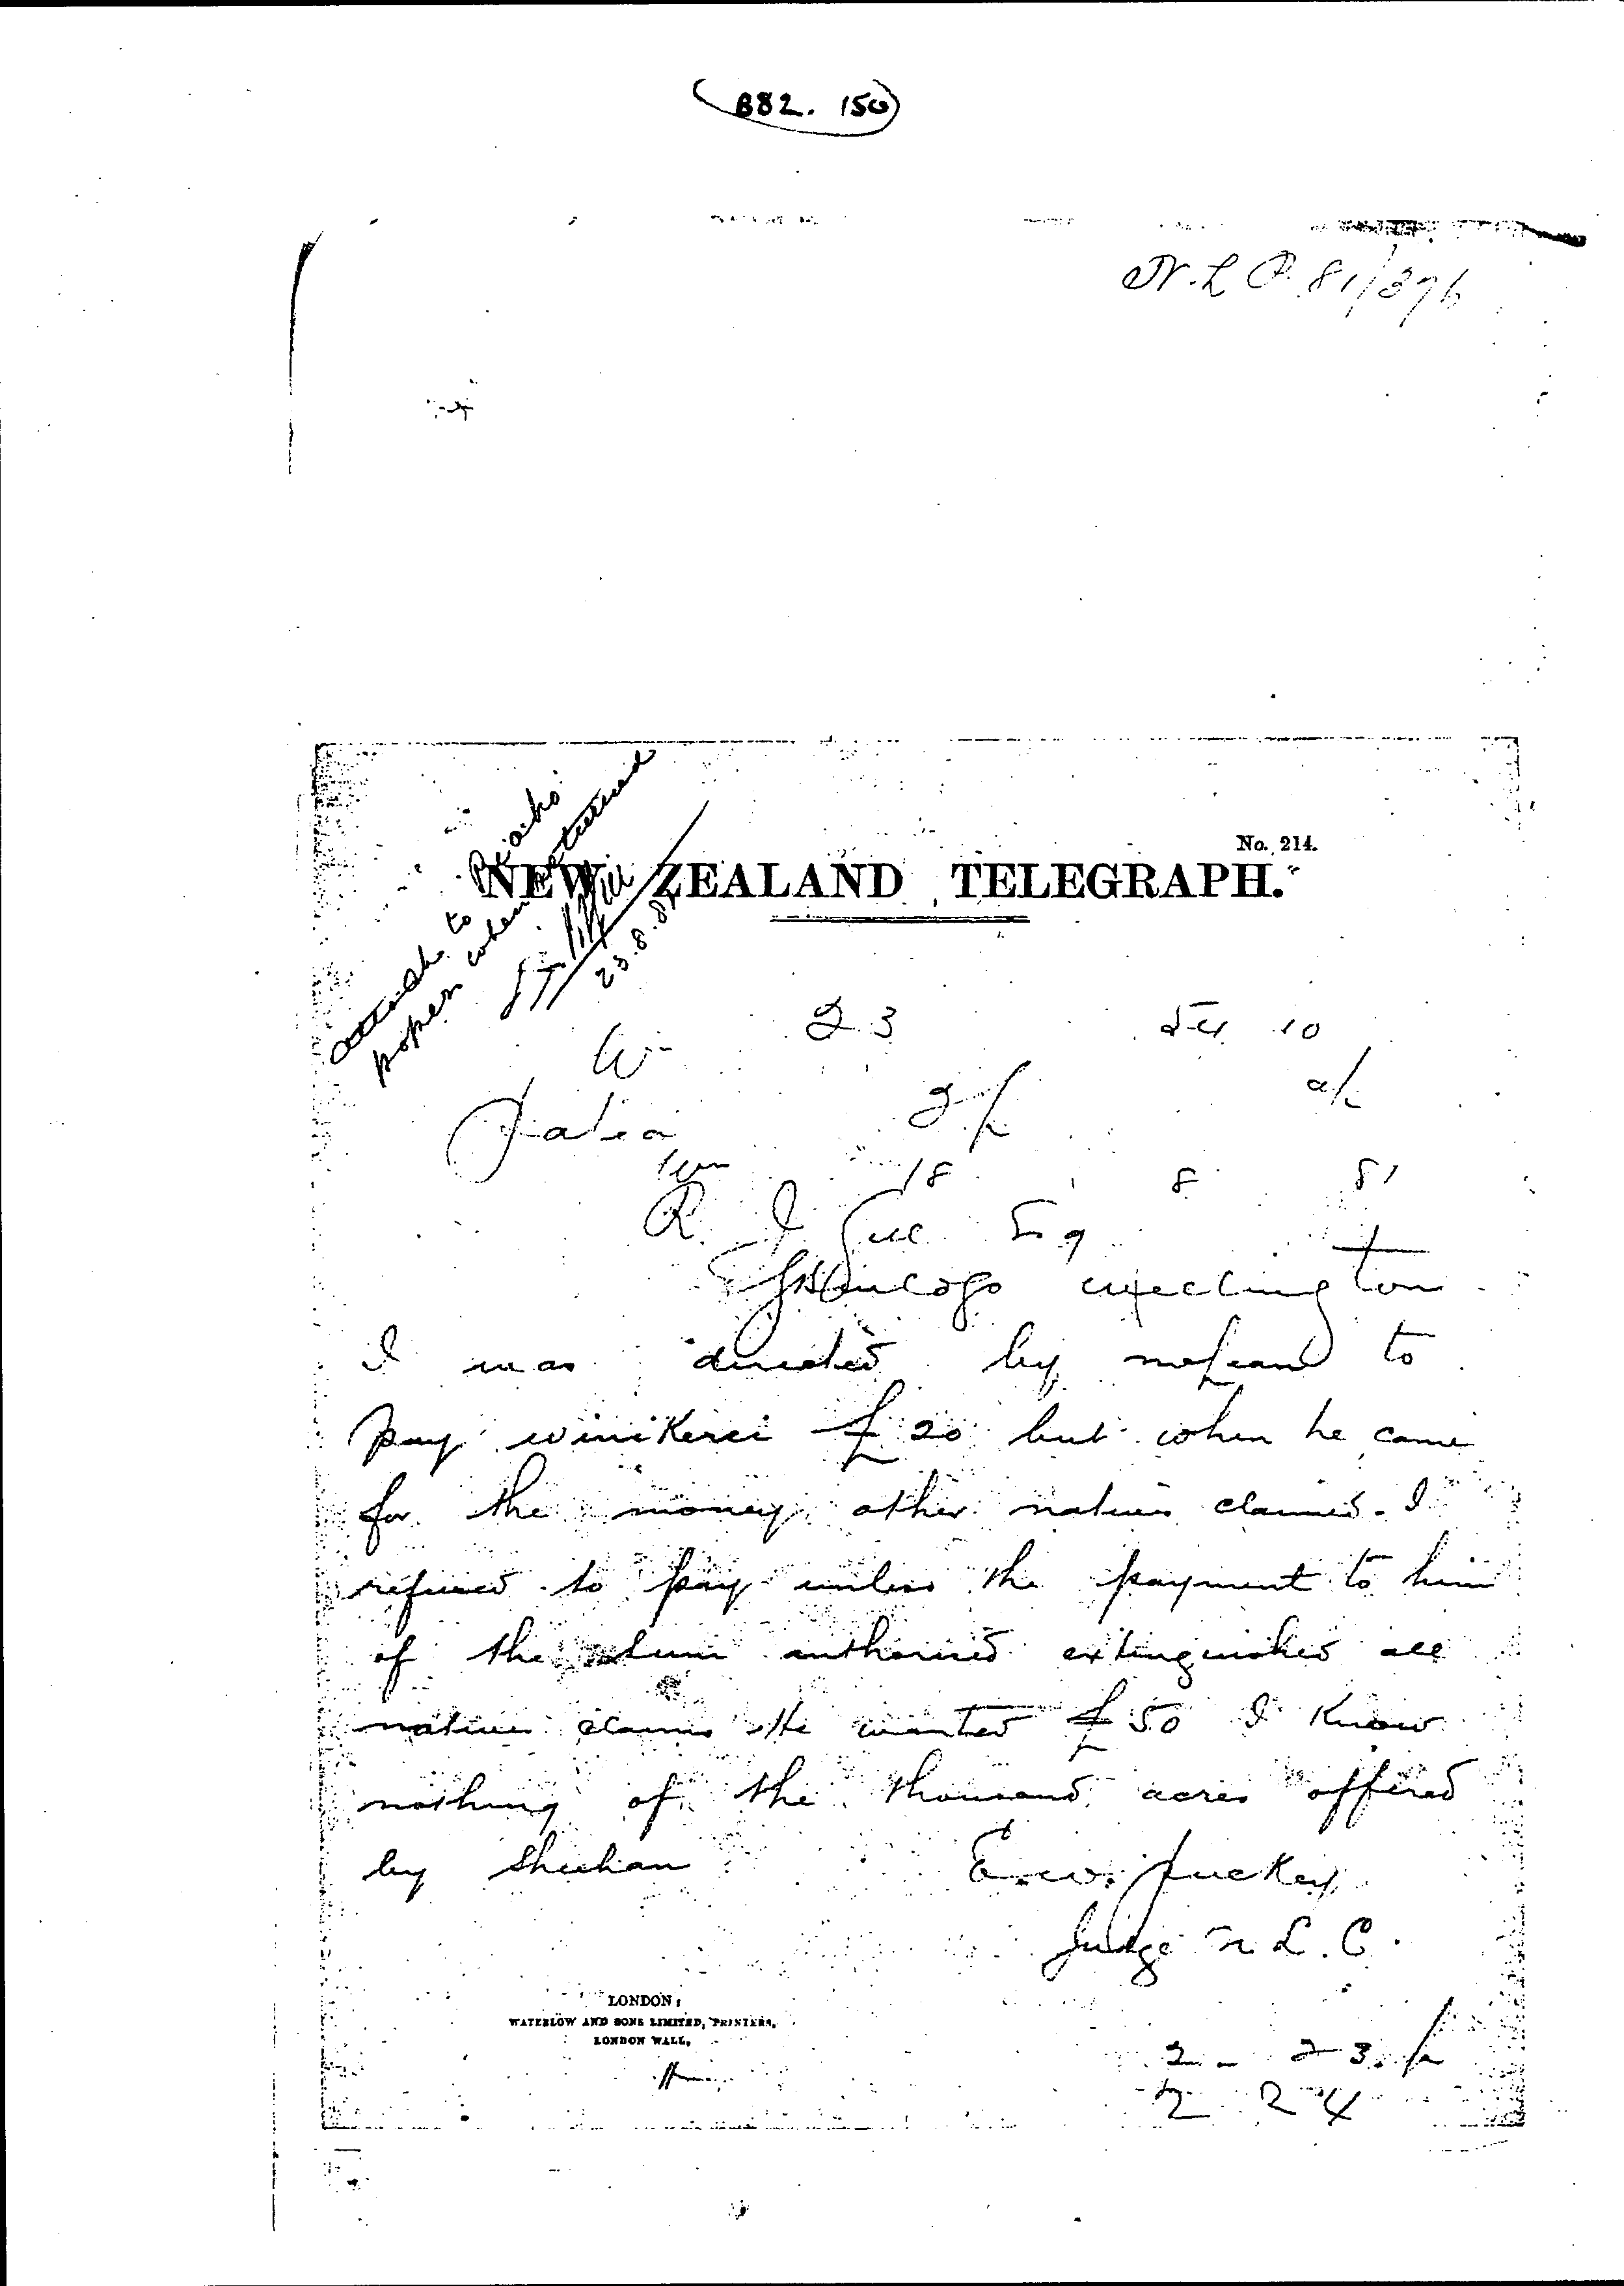 B82. 150
N.L.P. 81/396
attach to Piako
papers when returned
23.8.81
No. 214.
NEW ZEALAND TELEGRAPH.
W 23 54 10
2/ a/
18 8 81
R. J. Gill Esq
Wellington
I was directed by to
pay winikerei £20 but when he came
for the money other natives claimed. I
refused to pay unless the payment to him
of the sum authorised extinguished all
native claims He wanted £50 I know
nothing of the thousand acres offered
by Sheehan E. W. Puckey
Judge N. L. C.
LONDON:
WATERLOW AND SONS LIMITED, PRINTERS,
LONDON WALL.
2 - 23.
2 24